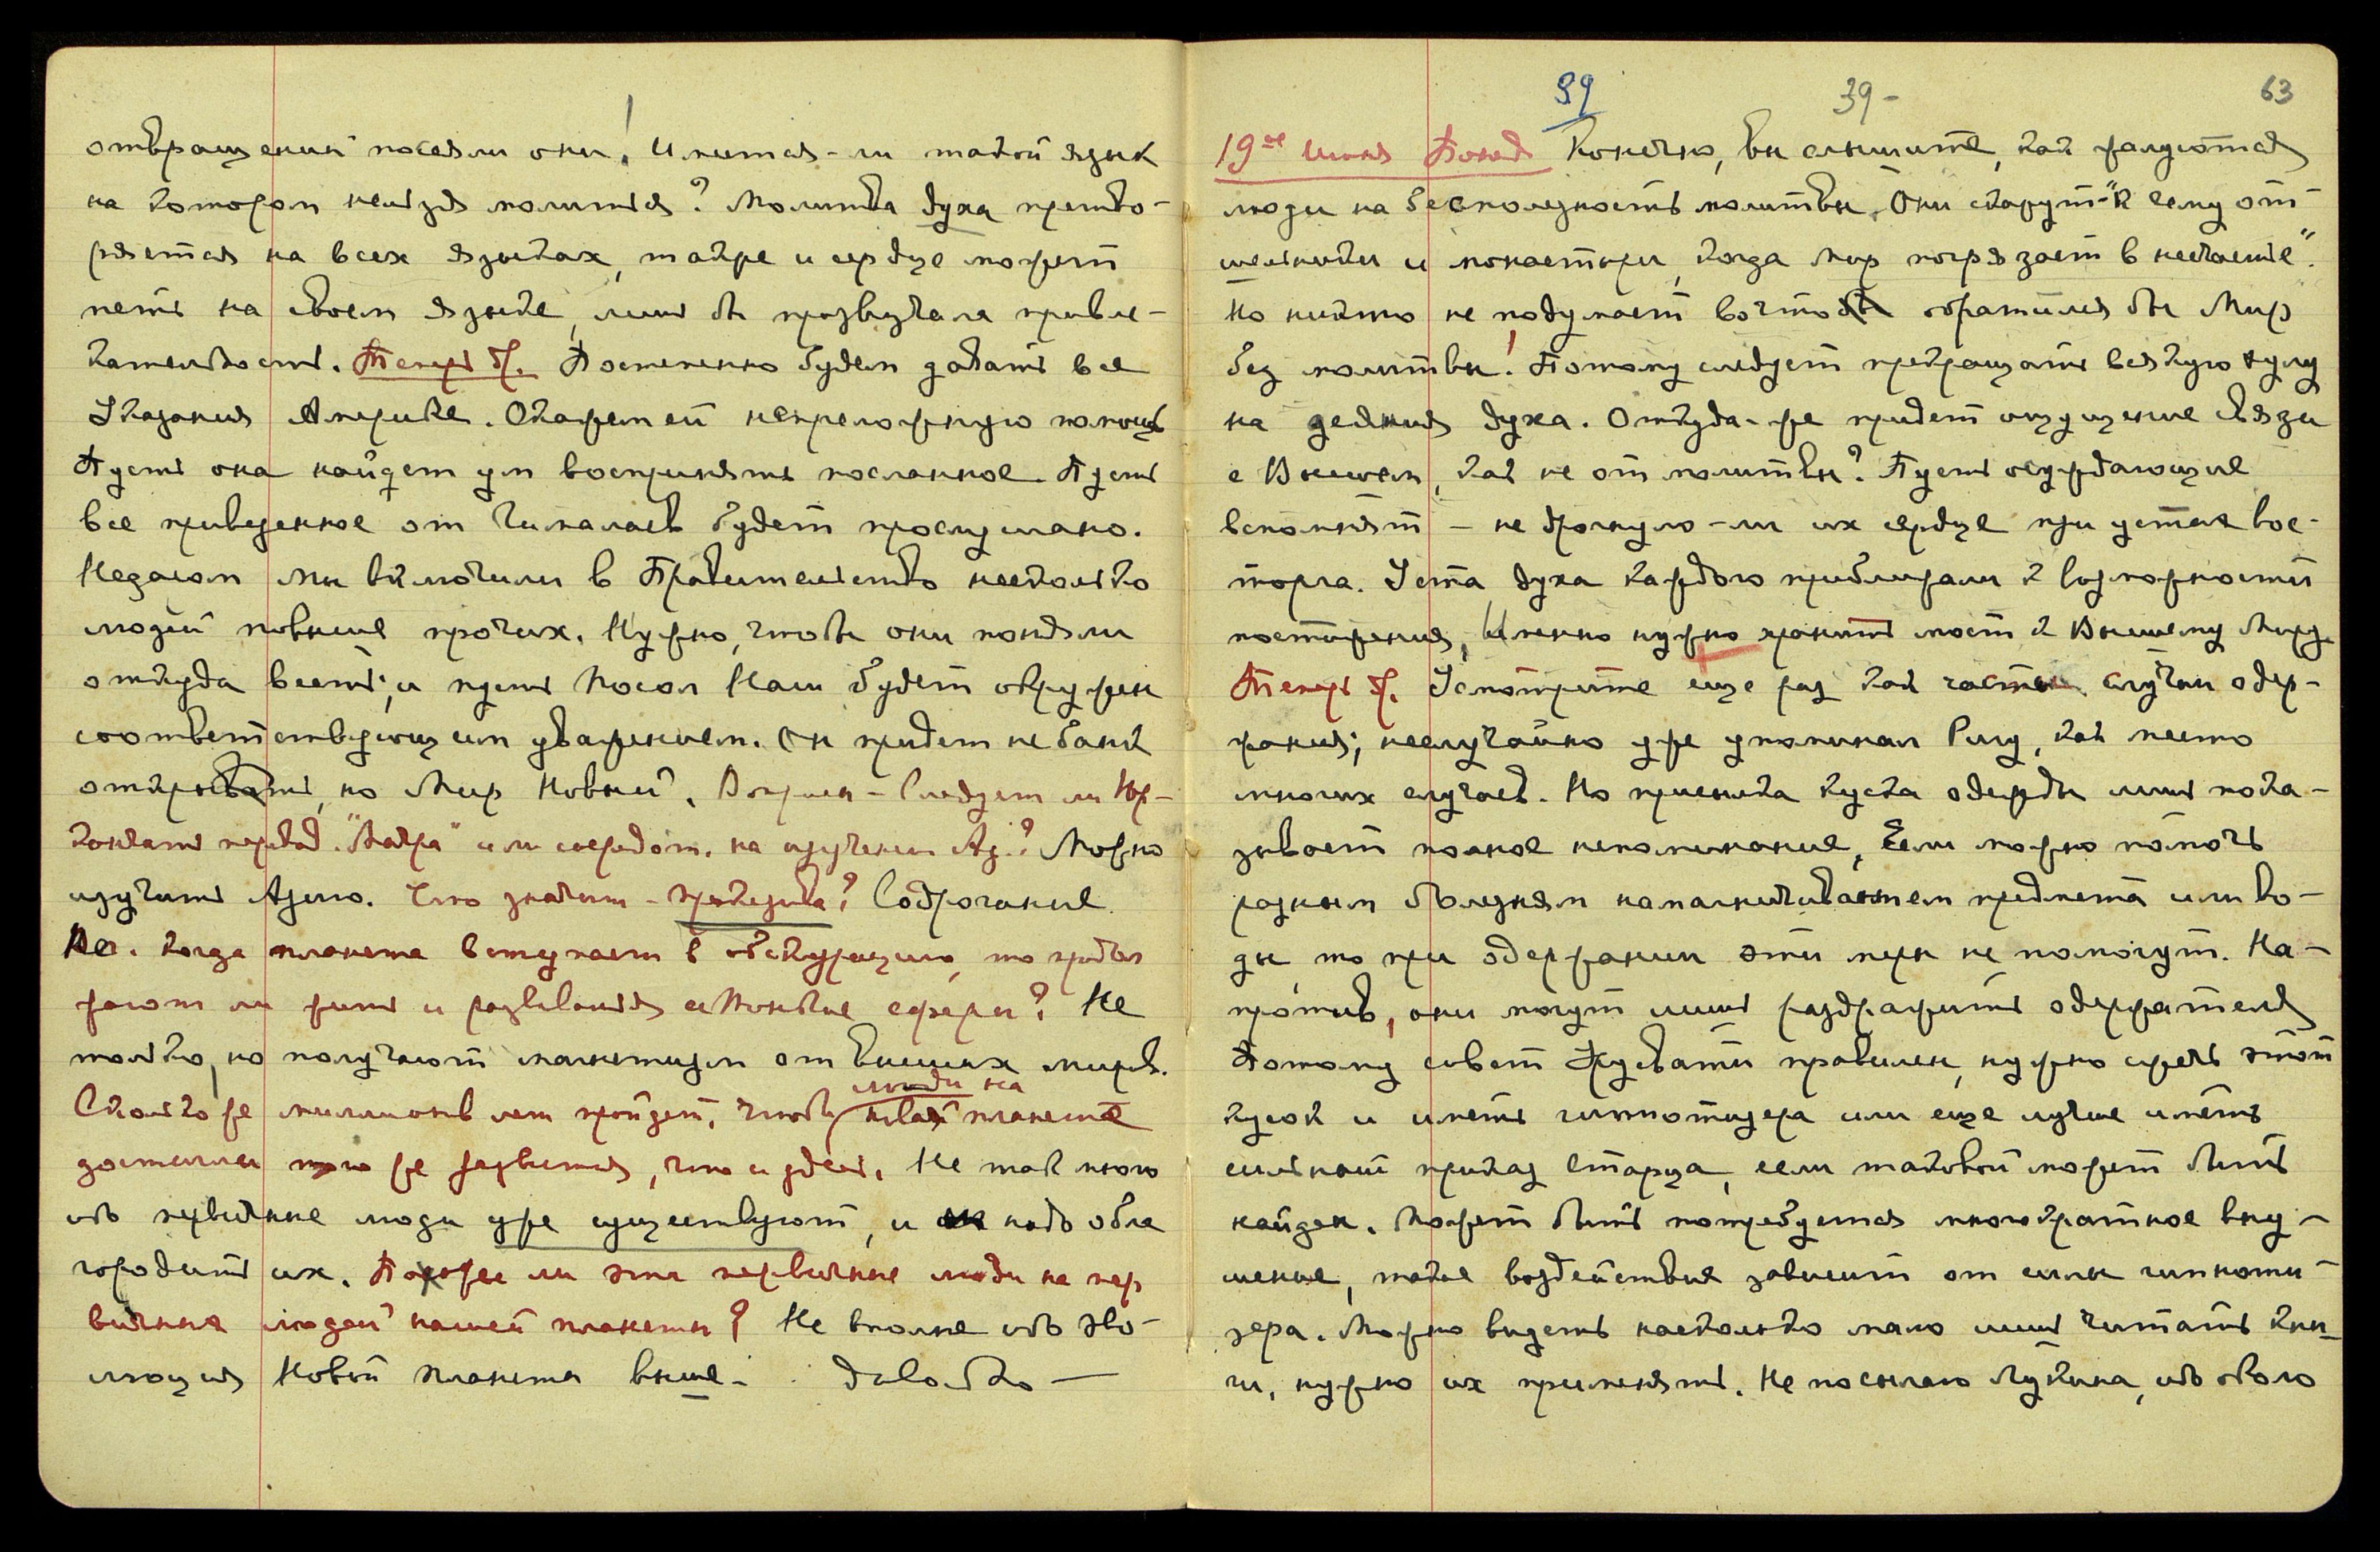 отвращений посеяли они! Имеется-ли такой язык
на котором нельзя молиться? Молитва духа претво-
ряется на всех языках, также и сердце может
петь на своем языке, лишь бы прозвучала привле-
кательность. Теперь др. Постепенно будем давать все
Указания Америке. Окажем ей непреложную помощь
Пусть она найдет ум воспринять посланное. Пусть
все приведенное от Гималаев будет прослушано.
Недаром мы включили в Правительство несколько
людей повыше прочих. Нужно, чтобы они поняли
откуда весть, и пусть Посол Наш будет окружен
соответствующим уважением. Он придет не банк
открывать, но Мир Новый. Вопрос - Следует ли Юр-
кончать перевод "Чакра" или сосредот. на изучении Аз.? Можно
изучить Азию. Что значит - ? Содрогание.
Когда планета вступает в обскурацию, то продол
жают ли жить и развиваться Тонкие сферы? Не
только, но получают магнетизм от высших миров.
Сколько же миллионов лет пройдет, чтобы люди на новой планете
достигли того же развития, что и здесь. Не так много
ибо первичные люди уже существуют, и надо обла
городить их. Похожи ли эти первичные люди на пер
вичных людей нашей планеты? Не вполне ибо эво-
люция Новой планеты выше. Довольно —
39 39- 63
19ое июня Понед Конечно, вы слышите, как жалуются
люди на бесполезность молитвы. Они скажут-"к чему от-
шельники и монастыри, когда Мир погрязает в несчастье".
Но никто не подумает во что обратился бы Мир
без молитвы! Потому следует прекращать всякую хулу
на деяния духа. Откуда-же придет ощущение связи
с Высшем, как не от молитвы? Пусть осуждающие
вспомнят - не дрогнуло-ли их сердце при устах вос-
торга. Уста духа каждого приближали к возможности
постижения, Именно нужно хранить мост к Высшему Миру.
Теперь др. Усмотрите еще раз как часты случаи одер-
жания; неслучайно уже упоминал Ригу, как место
многих случаев. Но присылка куска одежды лишь пока-
зывает полное непонимание, Если можно помочь
разным болезням намагничиванием предмета или во-
ды, то при одержании эти меры не помогут. На-
против, они могут лишь раздражить одержателя
Потому совет Урусвати правилен, нужно сжечь этот
кусок и иметь гипнотизера или еще лучше иметь
сильный приказ Старца, если таковой может быть
найден. Может быть потребуется многократное вну-
шение, такое воздействие зависит от силы гипноти-
зера. Можно видеть насколько мало лишь читать кни-
ги, нужно их применять. Не посылаю Лукина, ибо около